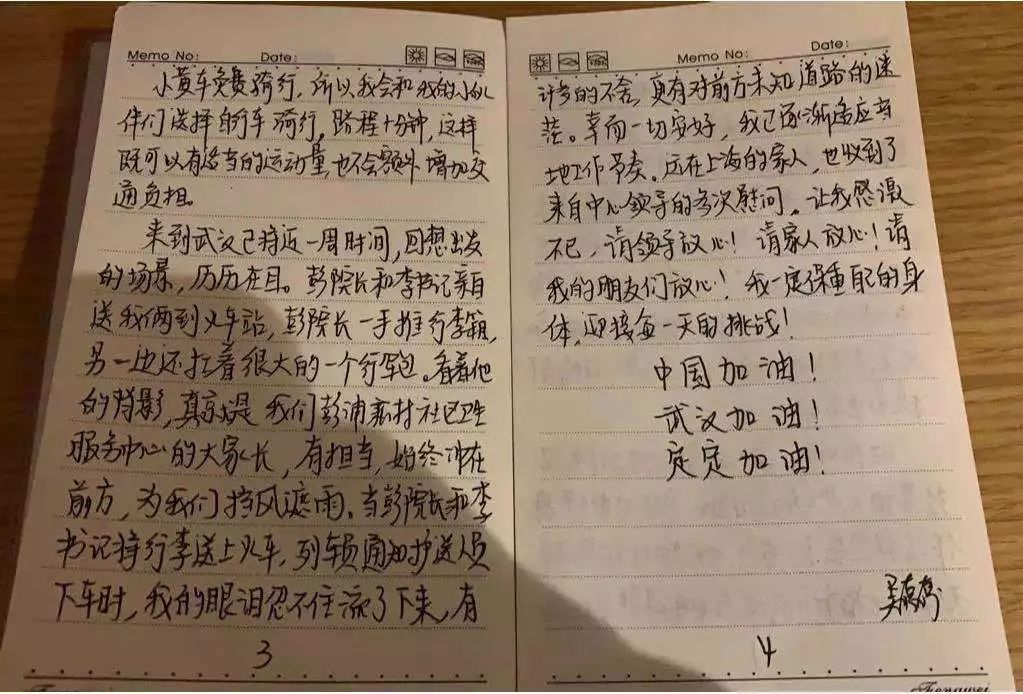 Memo No: Date:
小黄车免费骑行,所以我会和我的小伙
伴们选择自行车骑行,路程十分钟,这样
既可以有适当的运动量,也不会额外增加交
通负担。
来到武汉已将近一周时间,回想出发
的场景,历历在目。彭院长和李书记亲自
送我俩到火车站,彭院长一手推行李箱,
另一边还扛着很大的一个行李包。看着他
的背影,真是我们彭浦新村社区卫生
服务中心的大家长,有担当,始终冲在
前方,为我们挡风遮雨。当彭院长和李
书记将行李送上火车,列车员通知护送人员
下车时,我的眼泪忍不住流了下来,有
3
Memo No: Date:
许多的不舍,更有对前方未知道路的迷
茫。幸而一切安好,我已逐渐适应当
地工作节奏。远在上海的家人,也收到了
来自中心领导的多次慰问。让我感激
不已,请领导放心!请家人放心!请
我的朋友们放心!我一定保重自己的身
体,迎接每一天的挑战!
中国加油!
武汉加油!
定定加油!
4